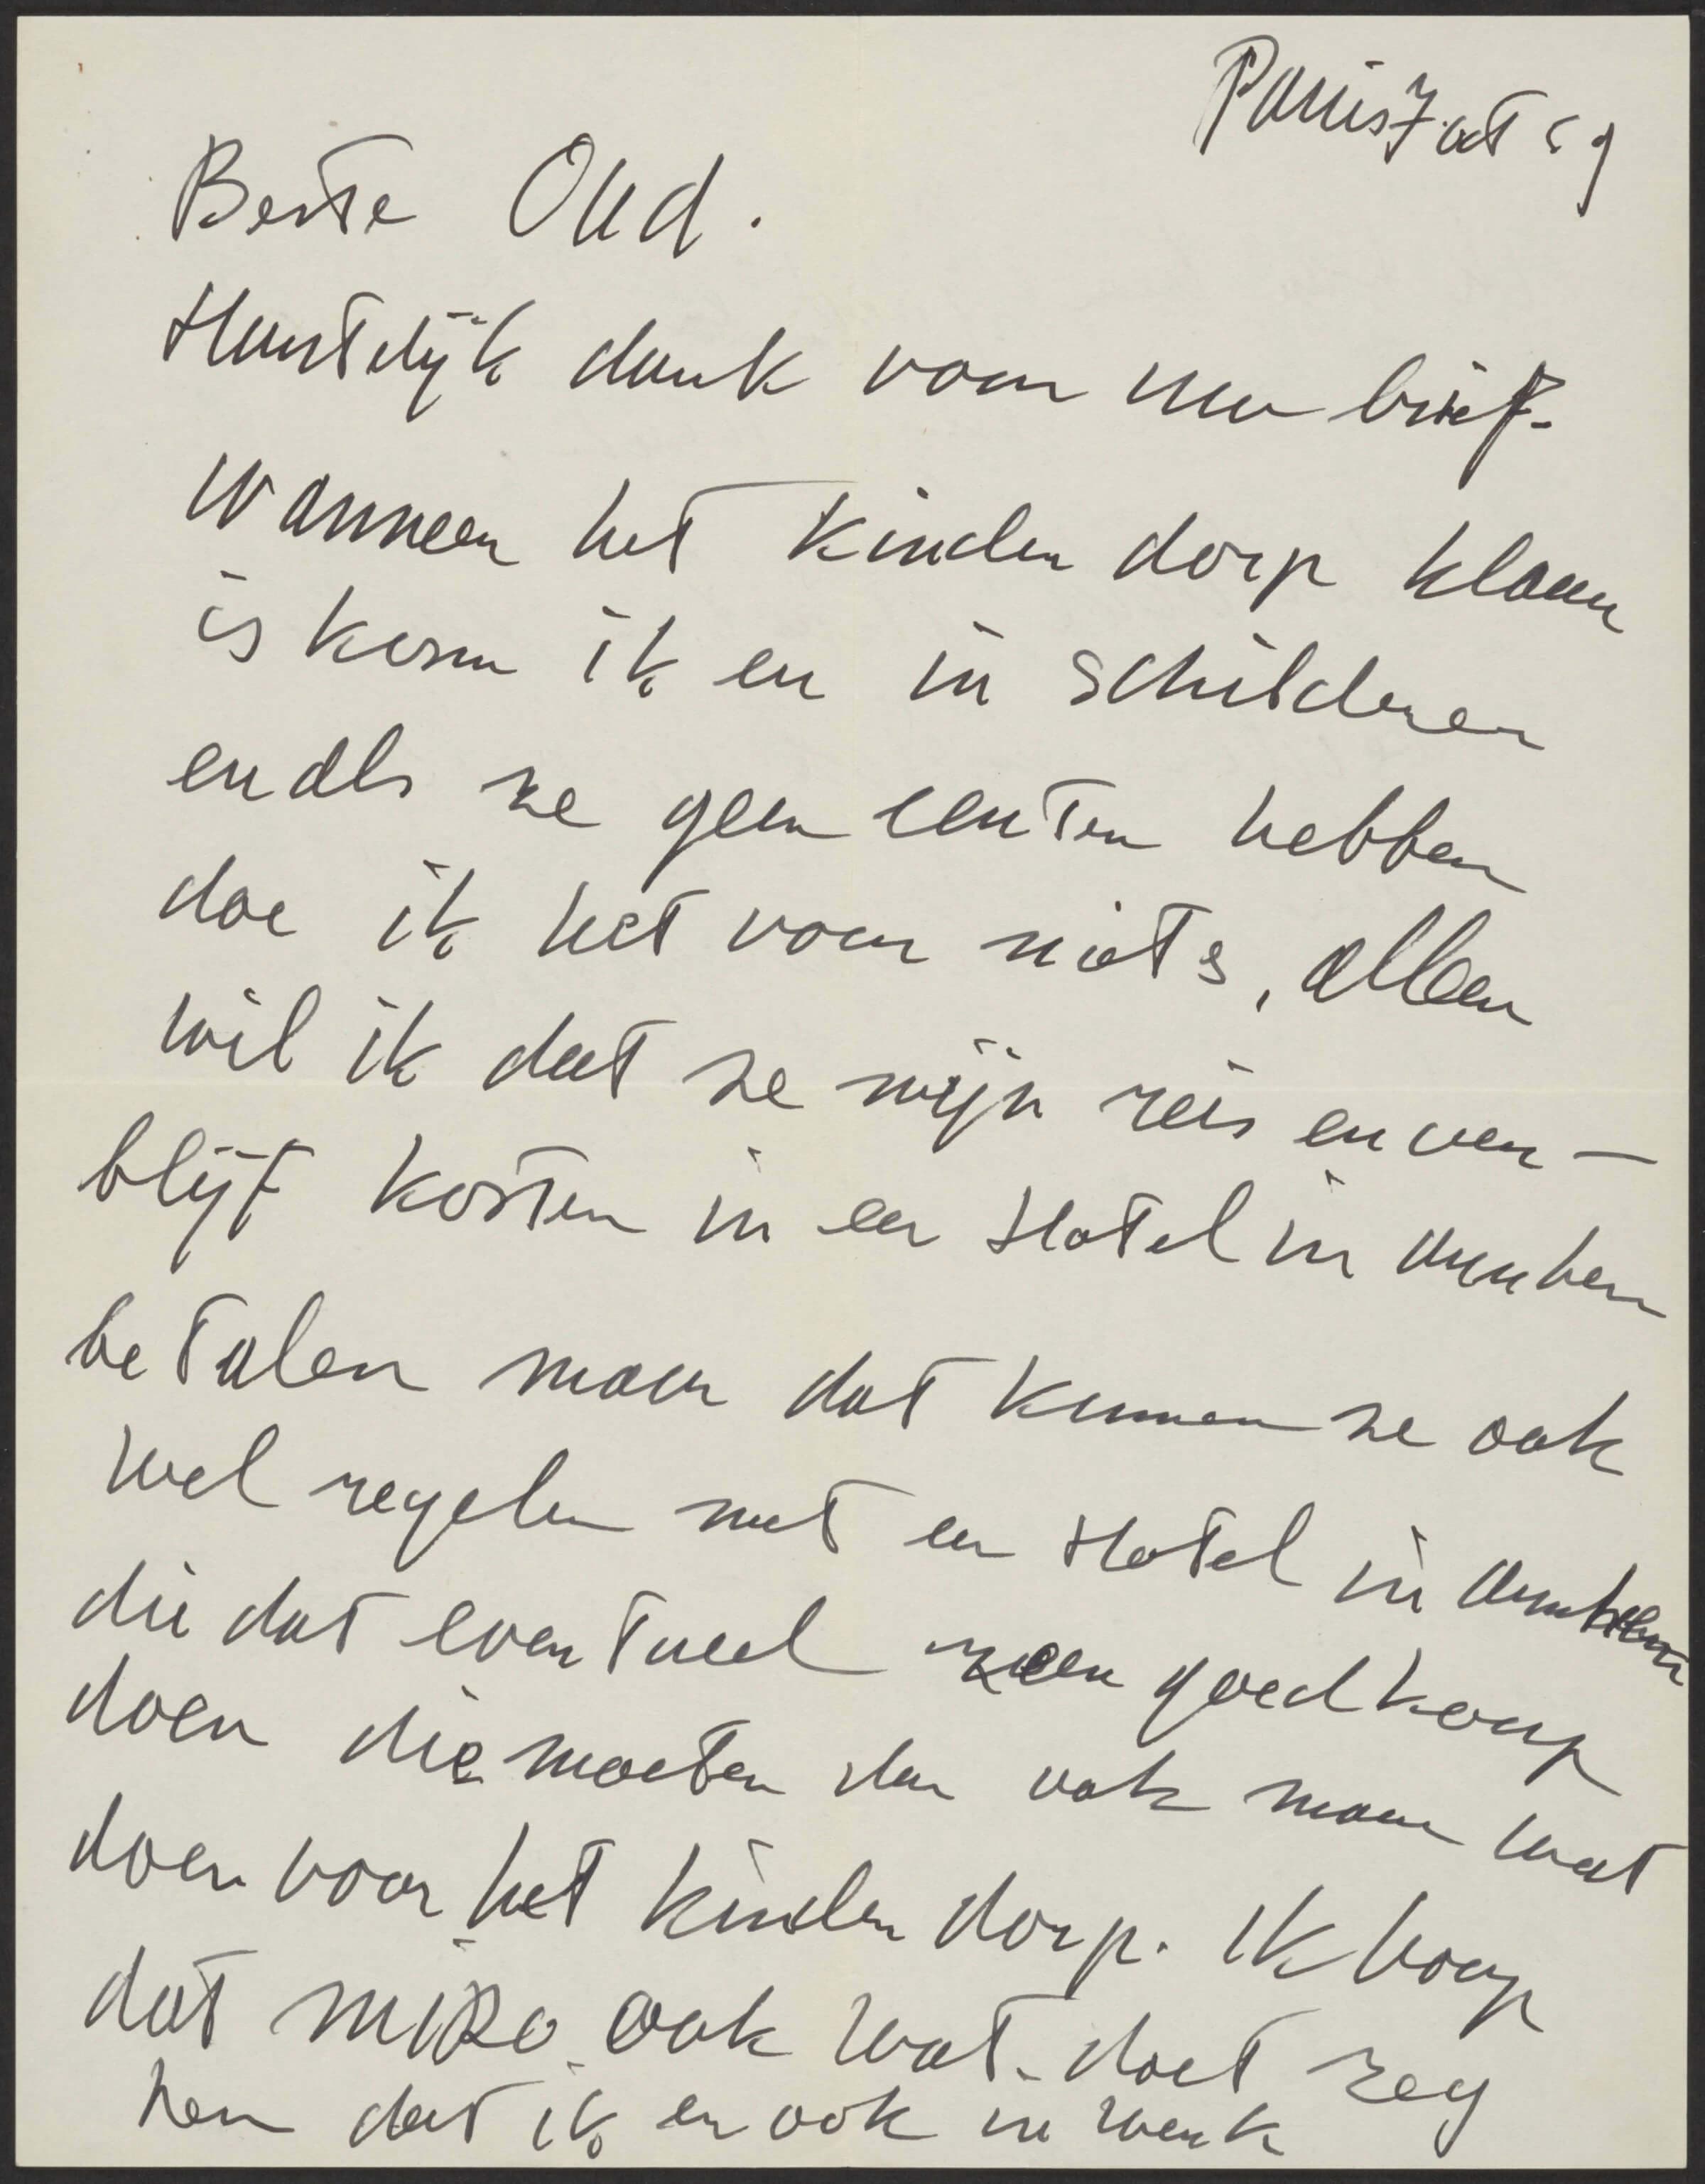 Paris 7 oct 59
Beste Oud.
Hartelijk dank voor uw brief.
wanneer het kinder dorp klaar
is kom ik er in schilderen
en als ze geen centen hebben
doe ik het voor niets, alleen
wil ik dat ze mijn reis en ver-
blijf kosten in een Hotel in Arnhem
betalen maar dat kunnen ze ook
wel regelen met een Hotel in Arnhem
die dat eventueel zeer goedkoop
doen die moeten dan ook maar wat
doen voor het kinder dorp. Ik hoop
dat miro ook wat doet zeg
hem dat ik er ook in werk